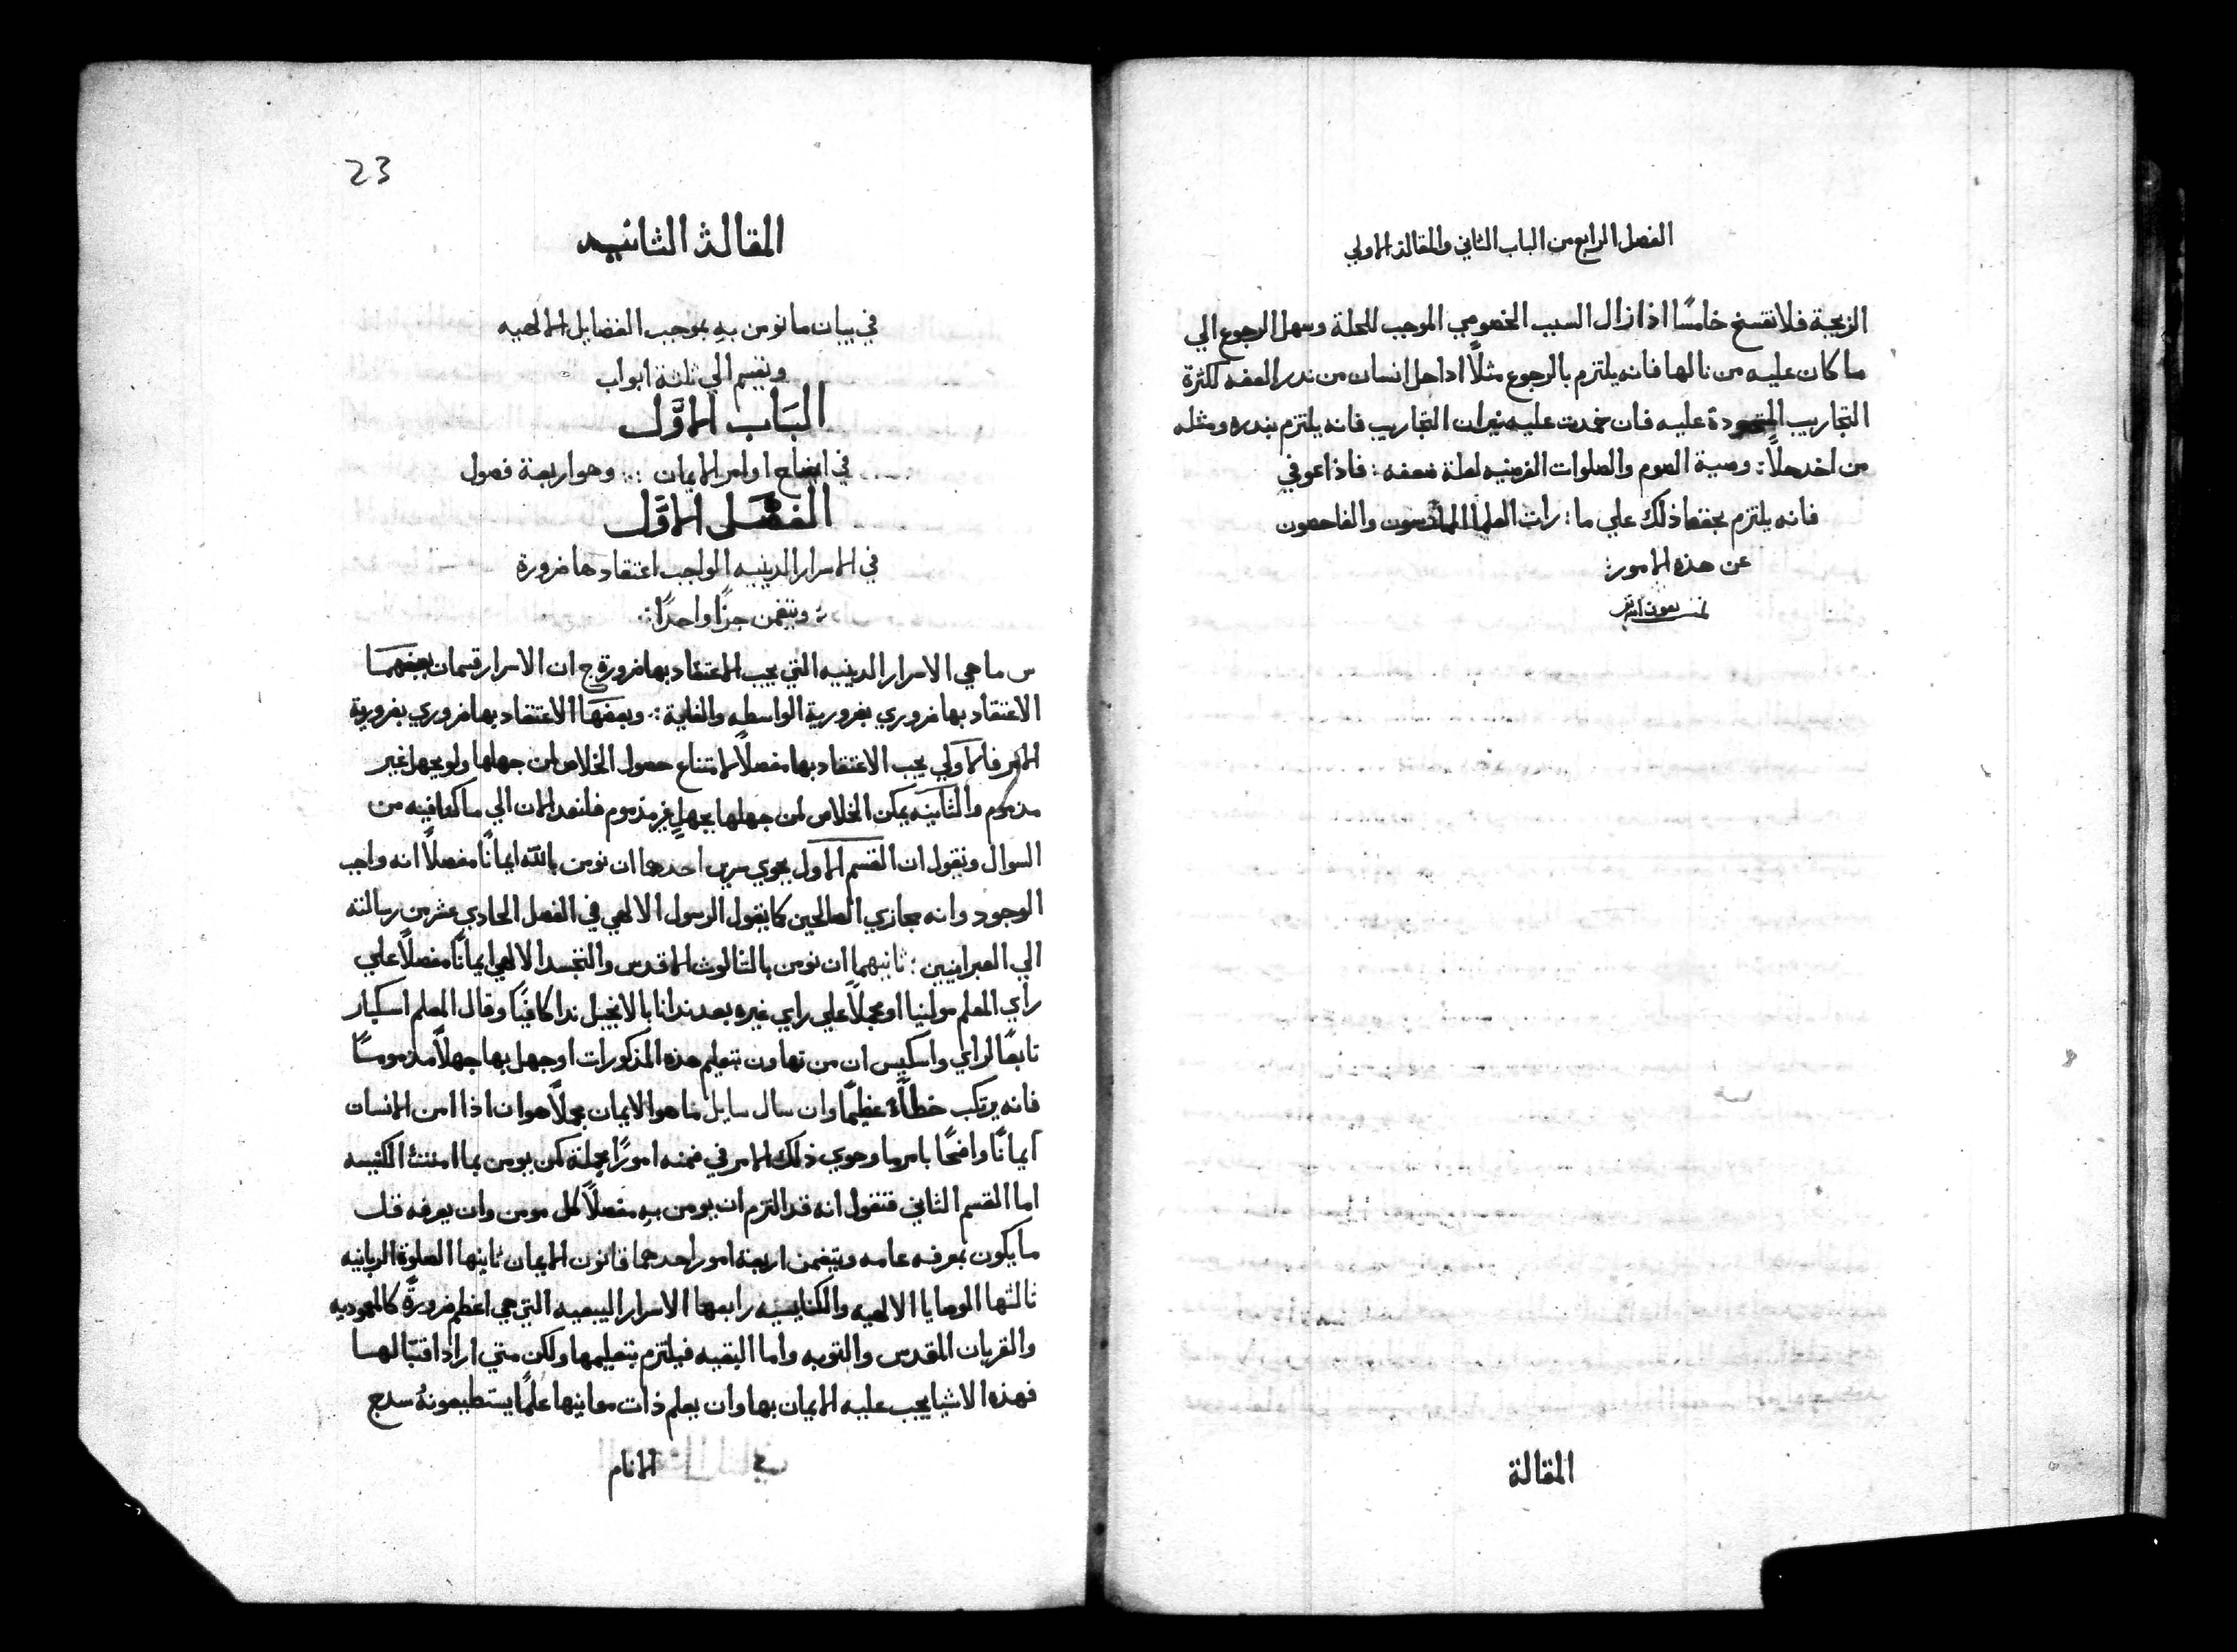 الفصل الرابع من الباب الثاني والمقالة الاولي
الزيجة فلا تفسخ خامسًا اذا زال السبب الخصومي الموجب للحلة وسهل الرجوع الي
ما كان عليه من نالها فانه يلتزم بالرجوع مثلًا اذا حل انسان من ندر العفه لكثرة
التجاريب عليه فان خمدت عليه نيران التجاريب فانه يلتزم بندره ومثله
من اخد حلًا: وصية الصوم والصلوات الفرضيه لعلة ضعفه: فاذا عوفي
فانه يلتزم بحفظ ذلك علي ما: رات العلما والفاحصون
عن هذه الامور:
المقالة
23
المقالة الثانيه
في بيان ما نومن بهِ بموجب الفضايل الالهيه
وتقسم الي ثلثة ابواب
البَاب الاوَّل
في ايضاح اوامر الايمان :: وهو اربعة فصول
الفصَل الاوَّل
في الاسرار الدينيه الواجب اعتقادها ضرورة
: وتتضمن جزًا واحدًا:
س ما هي الاسرار الدينيه التي يجب الاعتقاد بها ضرورة ج ان الاسرار قسمان بعضهَا
الاعتقاد بها ضروري بضرورية الواسطه والغاية:. وبعضهَا الاعتقاد بها ضروري بضرورية
الامر فالاولي يجب الاعتقاد بها مفصلًا لامتناع حصول الخلاص لمن جهلها ولو بجهل غير
مذموم والثانيه يمكن الخلاص لمن جهلها بجهلٍ غير مذموم فلنعد الان الي ما كنا فيه من
السوال ونقول ان القسم الاول يحوي سرين احدهما ان نومن بالله ايمانًا مفصلًا انه واجب
الوجود وانه مجازي الصالحين كما يقول الرسول الالهي في الفصل الحادي عشر من رسالته
الي العبرانيين: ثانيهما ان نومن بالثالوث الاقدس والتجسد الالهي ايمانًا مفصلًا علي
راي المعلم مولينا او مجملًا علي راي غيره بعد ندانا بالانجيل ندا كافيًا وقال المعلم اسكبار
تابعًا لراي واسكيس ان من تهاون بتعليم هذه المذكورات او جهل بها جهلًا مذمومًا
فانه يرتكب خطاًء عظيمًا وان سال سايل ما هو الايمان مجملًا هو ان اذا امن الانسان
ايمانًا واضحًا بامرٍ ما وحوي ذلك الامر في ضمنه امورًا مجملة كمن يومن بما امنت الكنيسه
اما القسم الثاني فنقول انه قد التزم ان يومن بهِ مفصلًا كل مومن وان يعرفه قل
ما يكون بمعرفه عامه ويتضمن اربعة امور احدهما قانون الايمان ثانيها الصلوة الربانيه
ثالثها الوصايا الالهيه والكنايسيه رابعها الاسرار البيعيه التي هي اعظم ضرورةً كالمعموديه
والقربان المقدس والتوبه واما البقيه فيلتزم بتعليمها ولكن متي اراد اقتبالهـا
فهذه الاشيا يجب عليه الايمان بها وان يعلم ذات معانيها علمًا يستطيعونهُ سدج
الانام